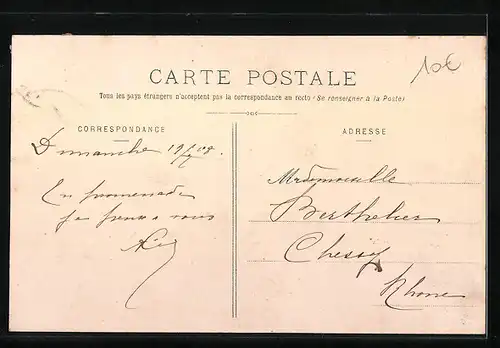 10€
CARTE POSTALE
Tous les pays étrangers n'acceptent pas la correspondance au recto (Se renseigner à la Poste)
CORRESPONDANCE
ADRESSE
Dimanche
En promenade
je pense a vous
Mademoiselle
Berthelier
Chessy
Rhone